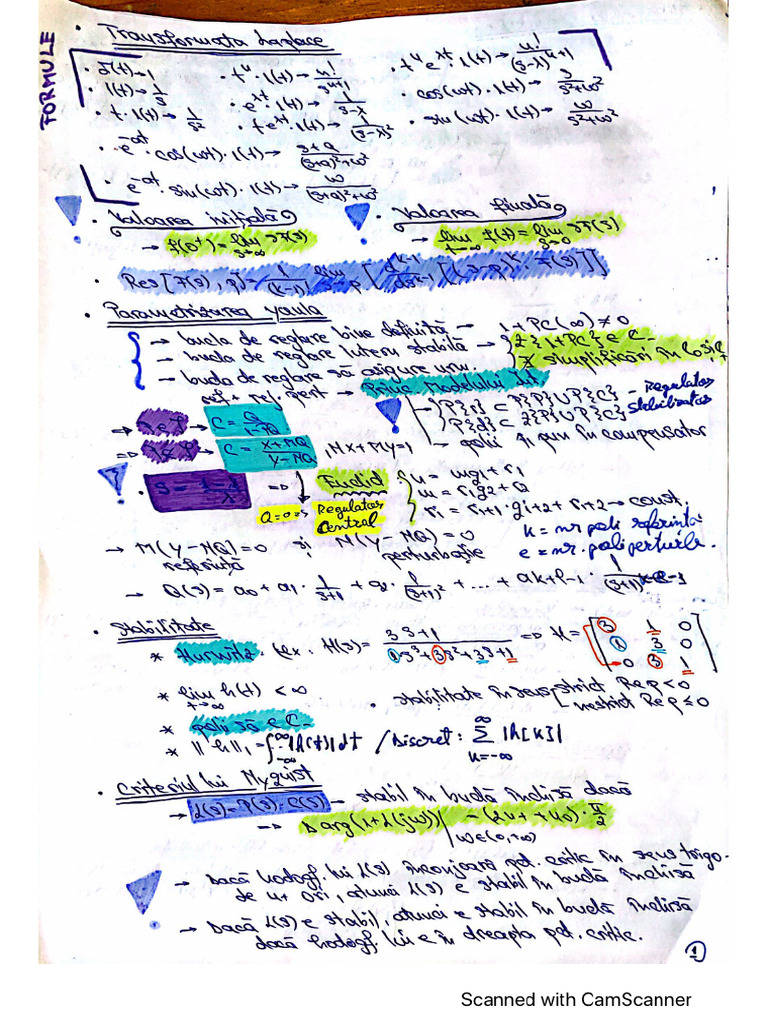 FORMULE
Transformata Laplace
• δ(t) → 1 • tⁿ·1(t) → n!/sⁿ⁺¹ • tⁿe^λt·1(t) → n!/(s-λ)ⁿ⁺¹
• 1(t) → 1/s • e^λt·1(t) → 1/(s-λ) • cos(ωt)·1(t) → s/(s²+ω²)
• t·1(t) → 1/s² • te^λt·1(t) → 1/(s-λ)² • sin(ωt)·1(t) → ω/(s²+ω²)
• e^-at·cos(ωt)·1(t) → (s+a)/((s+a)²+ω²)
• e^-at·sin(ωt)·1(t) → ω/((s+a)²+ω²)
• Valoarea inițială • Valoarea finală
→ f(0⁺) = lim s→∞ sF(s) → lim f(t) = lim s→0 sF(s)
• Res[F(s), p] = 1/(k-1)! lim s→p [d^k-1/ds^k-1 [(s-p)^k · F(s)]]
• Parametrizarea Youla
→ bucla de reglare bine definită → 1+PC(∞) ≠ 0
→ bucla de reglare intern stabilă → Z{1+PC} ∈ C₋
simplificări în
→ bucla de reglare să asigure urm.
ref + rej. pert → Princ. Modelului Int.
P{r} ⊂ P{P}∪P{C} – Regulator stabilizator
P{d} ⊂ Z{P}∪P{C}
– polii îi pun în compensator
⇒ C = Q/
⇒ C = (X+MQ)/(Y-NQ) , NX+MY=1
⇒ Euclid
n = mg₁+r₁
m = r₁g₂+r₂
Q=0 ⇒ Regulator Central
rᵢ = rᵢ₊₁·gᵢ₊₂ + rᵢ₊₂ → const.
→ M(Y-NQ)=0 și N(Y-NQ)=0 k = nr poli referință
referință perturbație e = nr. poli perturb.
→ Q(s) = a₀+a₁·1/(s+1) + a₂·1/(s+1)² + ... + a k+l-1 · 1/(s+1)^k+l-1
• Stabilitate
* Hurwitz: Ex. H(s) = (3s+1)/(1s³+3s²+2s+1) ⇒ H = [3 1 0
1 3 0
0 3 1]
* lim t→∞ h(t) < ∞ • stabilitate în sens strict Re p < 0
nestrict Re p ≤ 0
* polii să ∈ C₋
* ||h||₁ = ∫-∞^∞ |h(t)|dt / Discret: Σ k=-∞^∞ |h[k]|
• Criteriul lui Nyquist
→ L(s) = P(s)·C(s) → stabil în buclă închisă dacă
⇒ Δ arg(1+L(jω))| ω∈(0,+∞) = (2n₊ + n₀)·π/2
→ Dacă hodogf. lui L(s) înconjoară pct. critic în sens trigo-
de n+ ori, atunci L(s) e stabil în buclă închisă
→ Dacă L(s) e stabil, atunci e stabil în buclă închisă
dacă hodogf. lui e în dreapta pct. critic.
1
Scanned with CamScanner